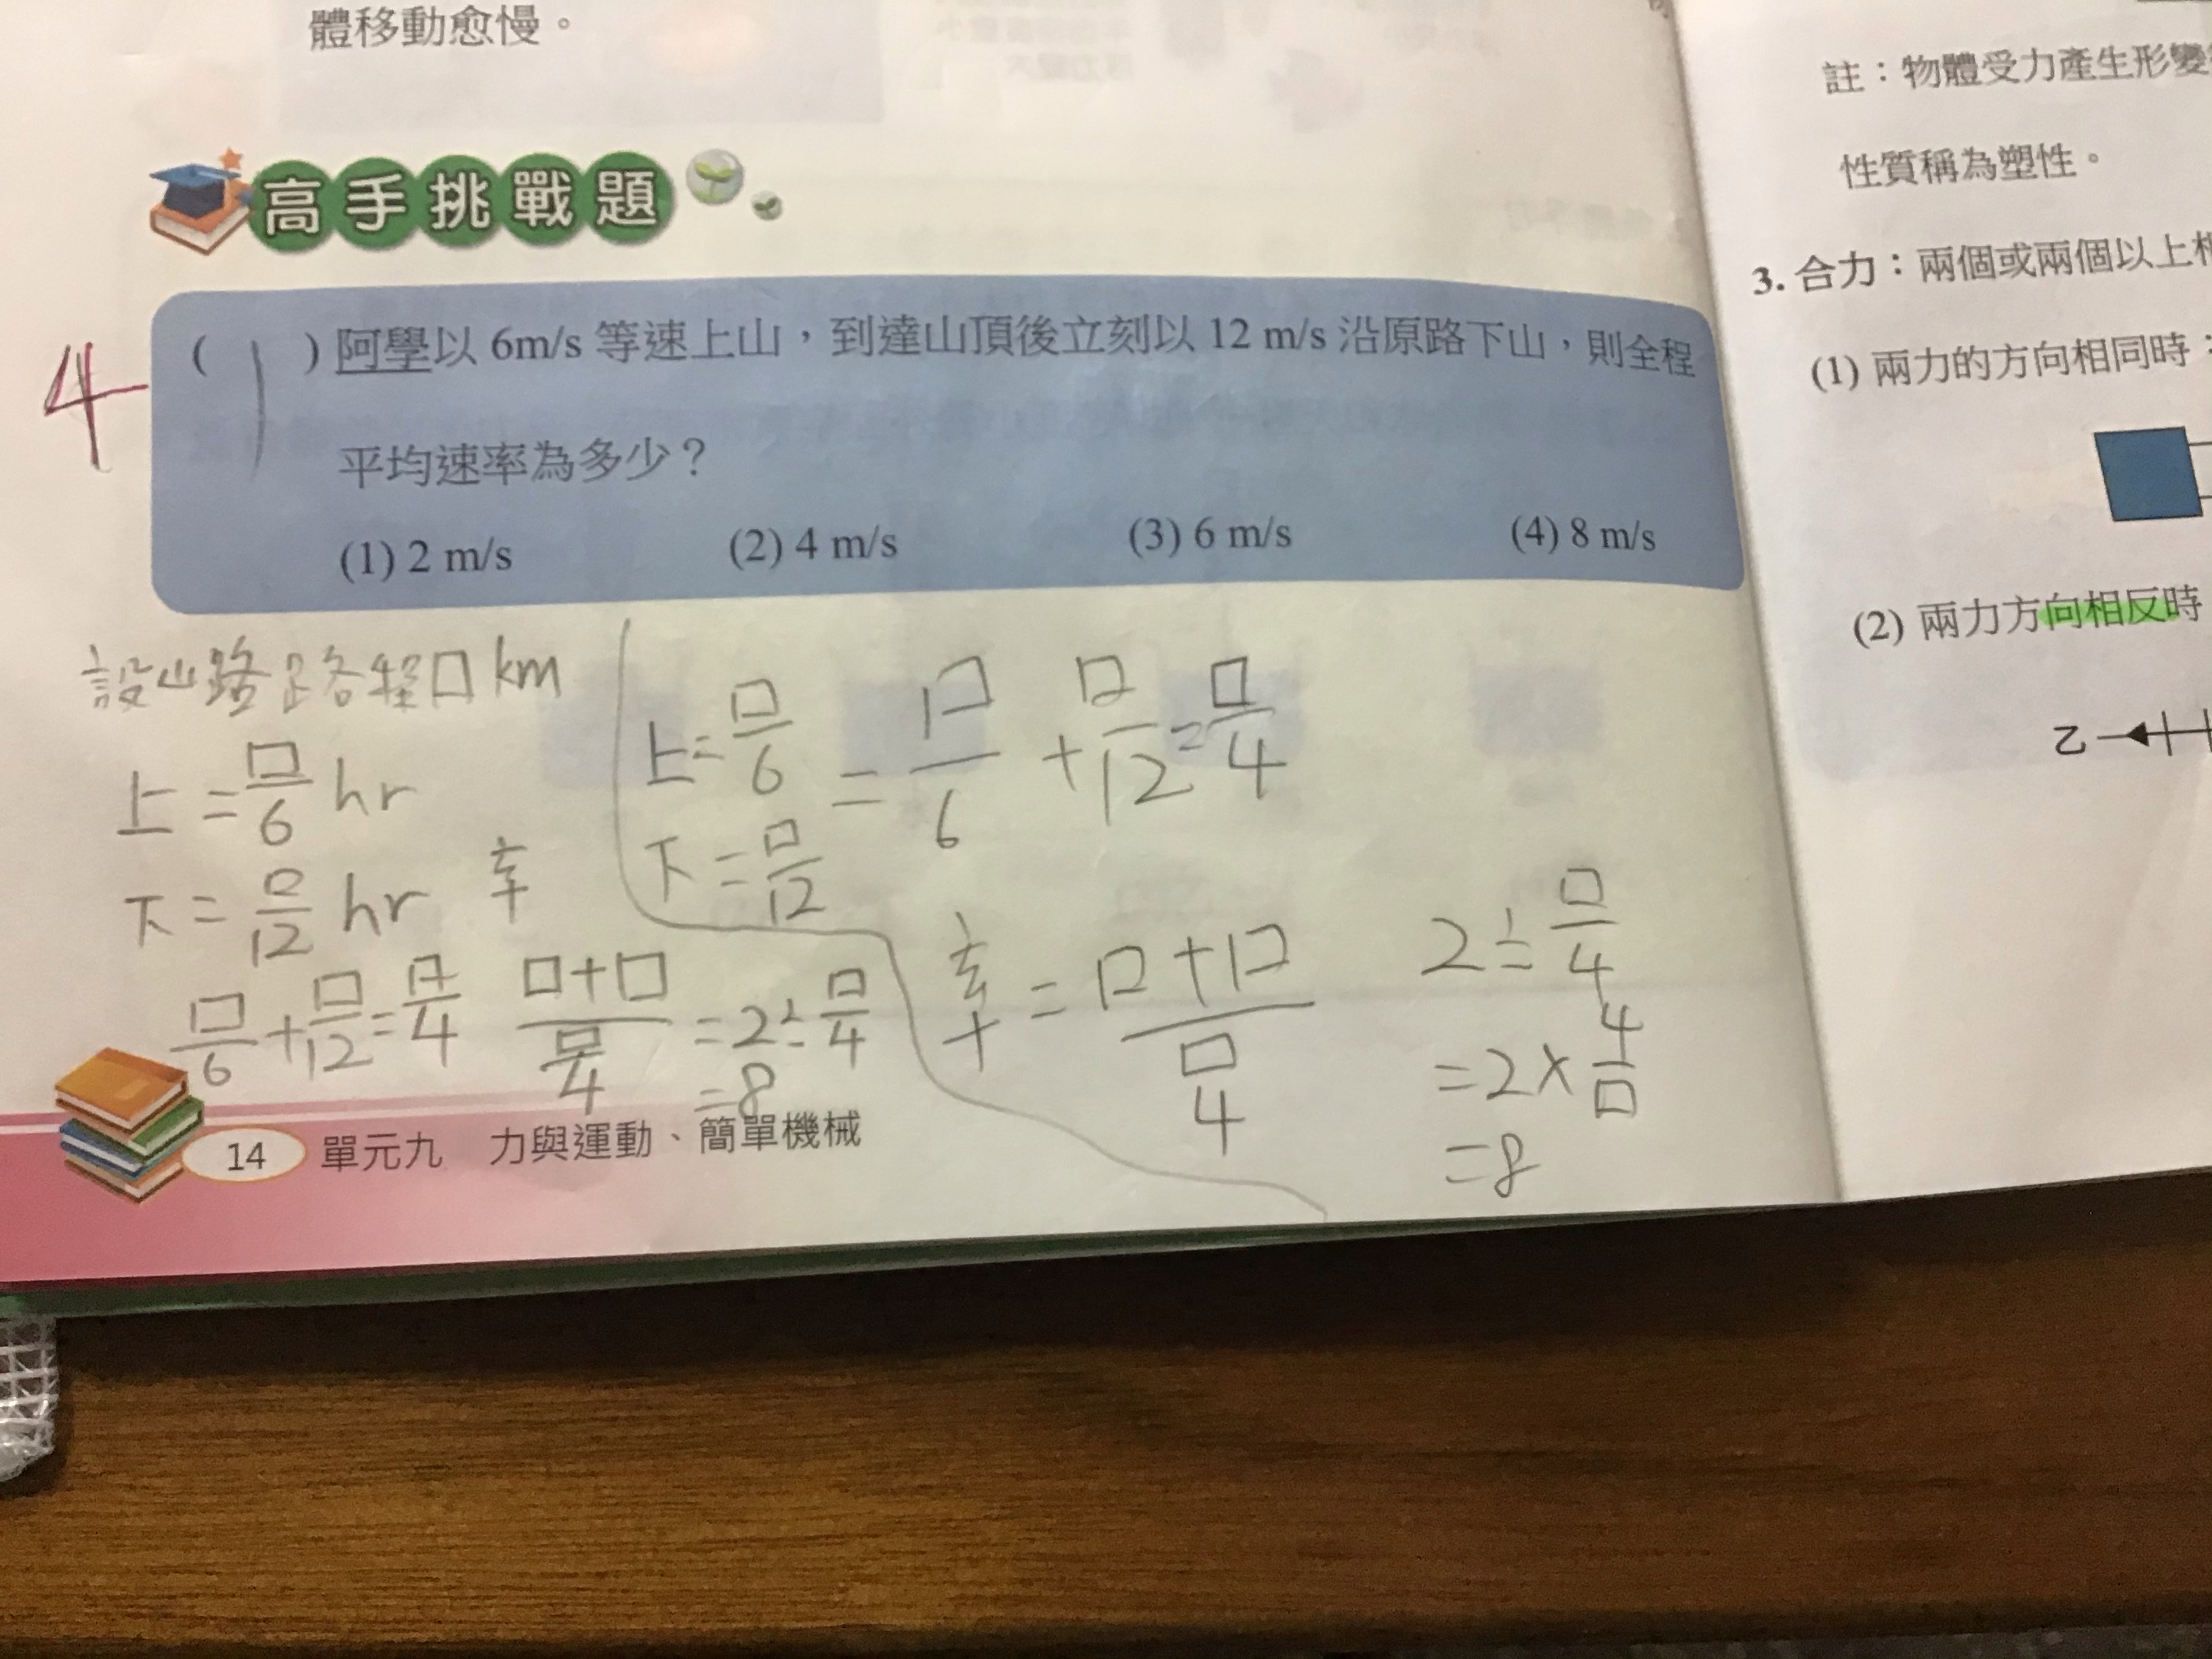 體移動愈慢。
高手挑戰題
4
( 1 ) 阿學以 6m/s 等速上山，到達山頂後立刻以 12 m/s 沿原路下山，則全程
平均速率為多少？
(1) 2 m/s (2) 4 m/s (3) 6 m/s (4) 8 m/s
設山路路程□km
上=□/6 hr
下=□/12 hr 率
□/6+□/12=□/4 (□+□)/(□/4) =2÷□/4
=8
上=□/6 = □/6 + □/12=□/4
下=□/12
率=(□+□)/(□/4)
2÷□/4
=2×4/□
=8
14 單元九 力與運動、簡單機械
註：物體受力產生形變
性質稱為塑性。
3. 合力：兩個或兩個以上
(1) 兩力的方向相同時：
(2) 兩力方向相反時
乙